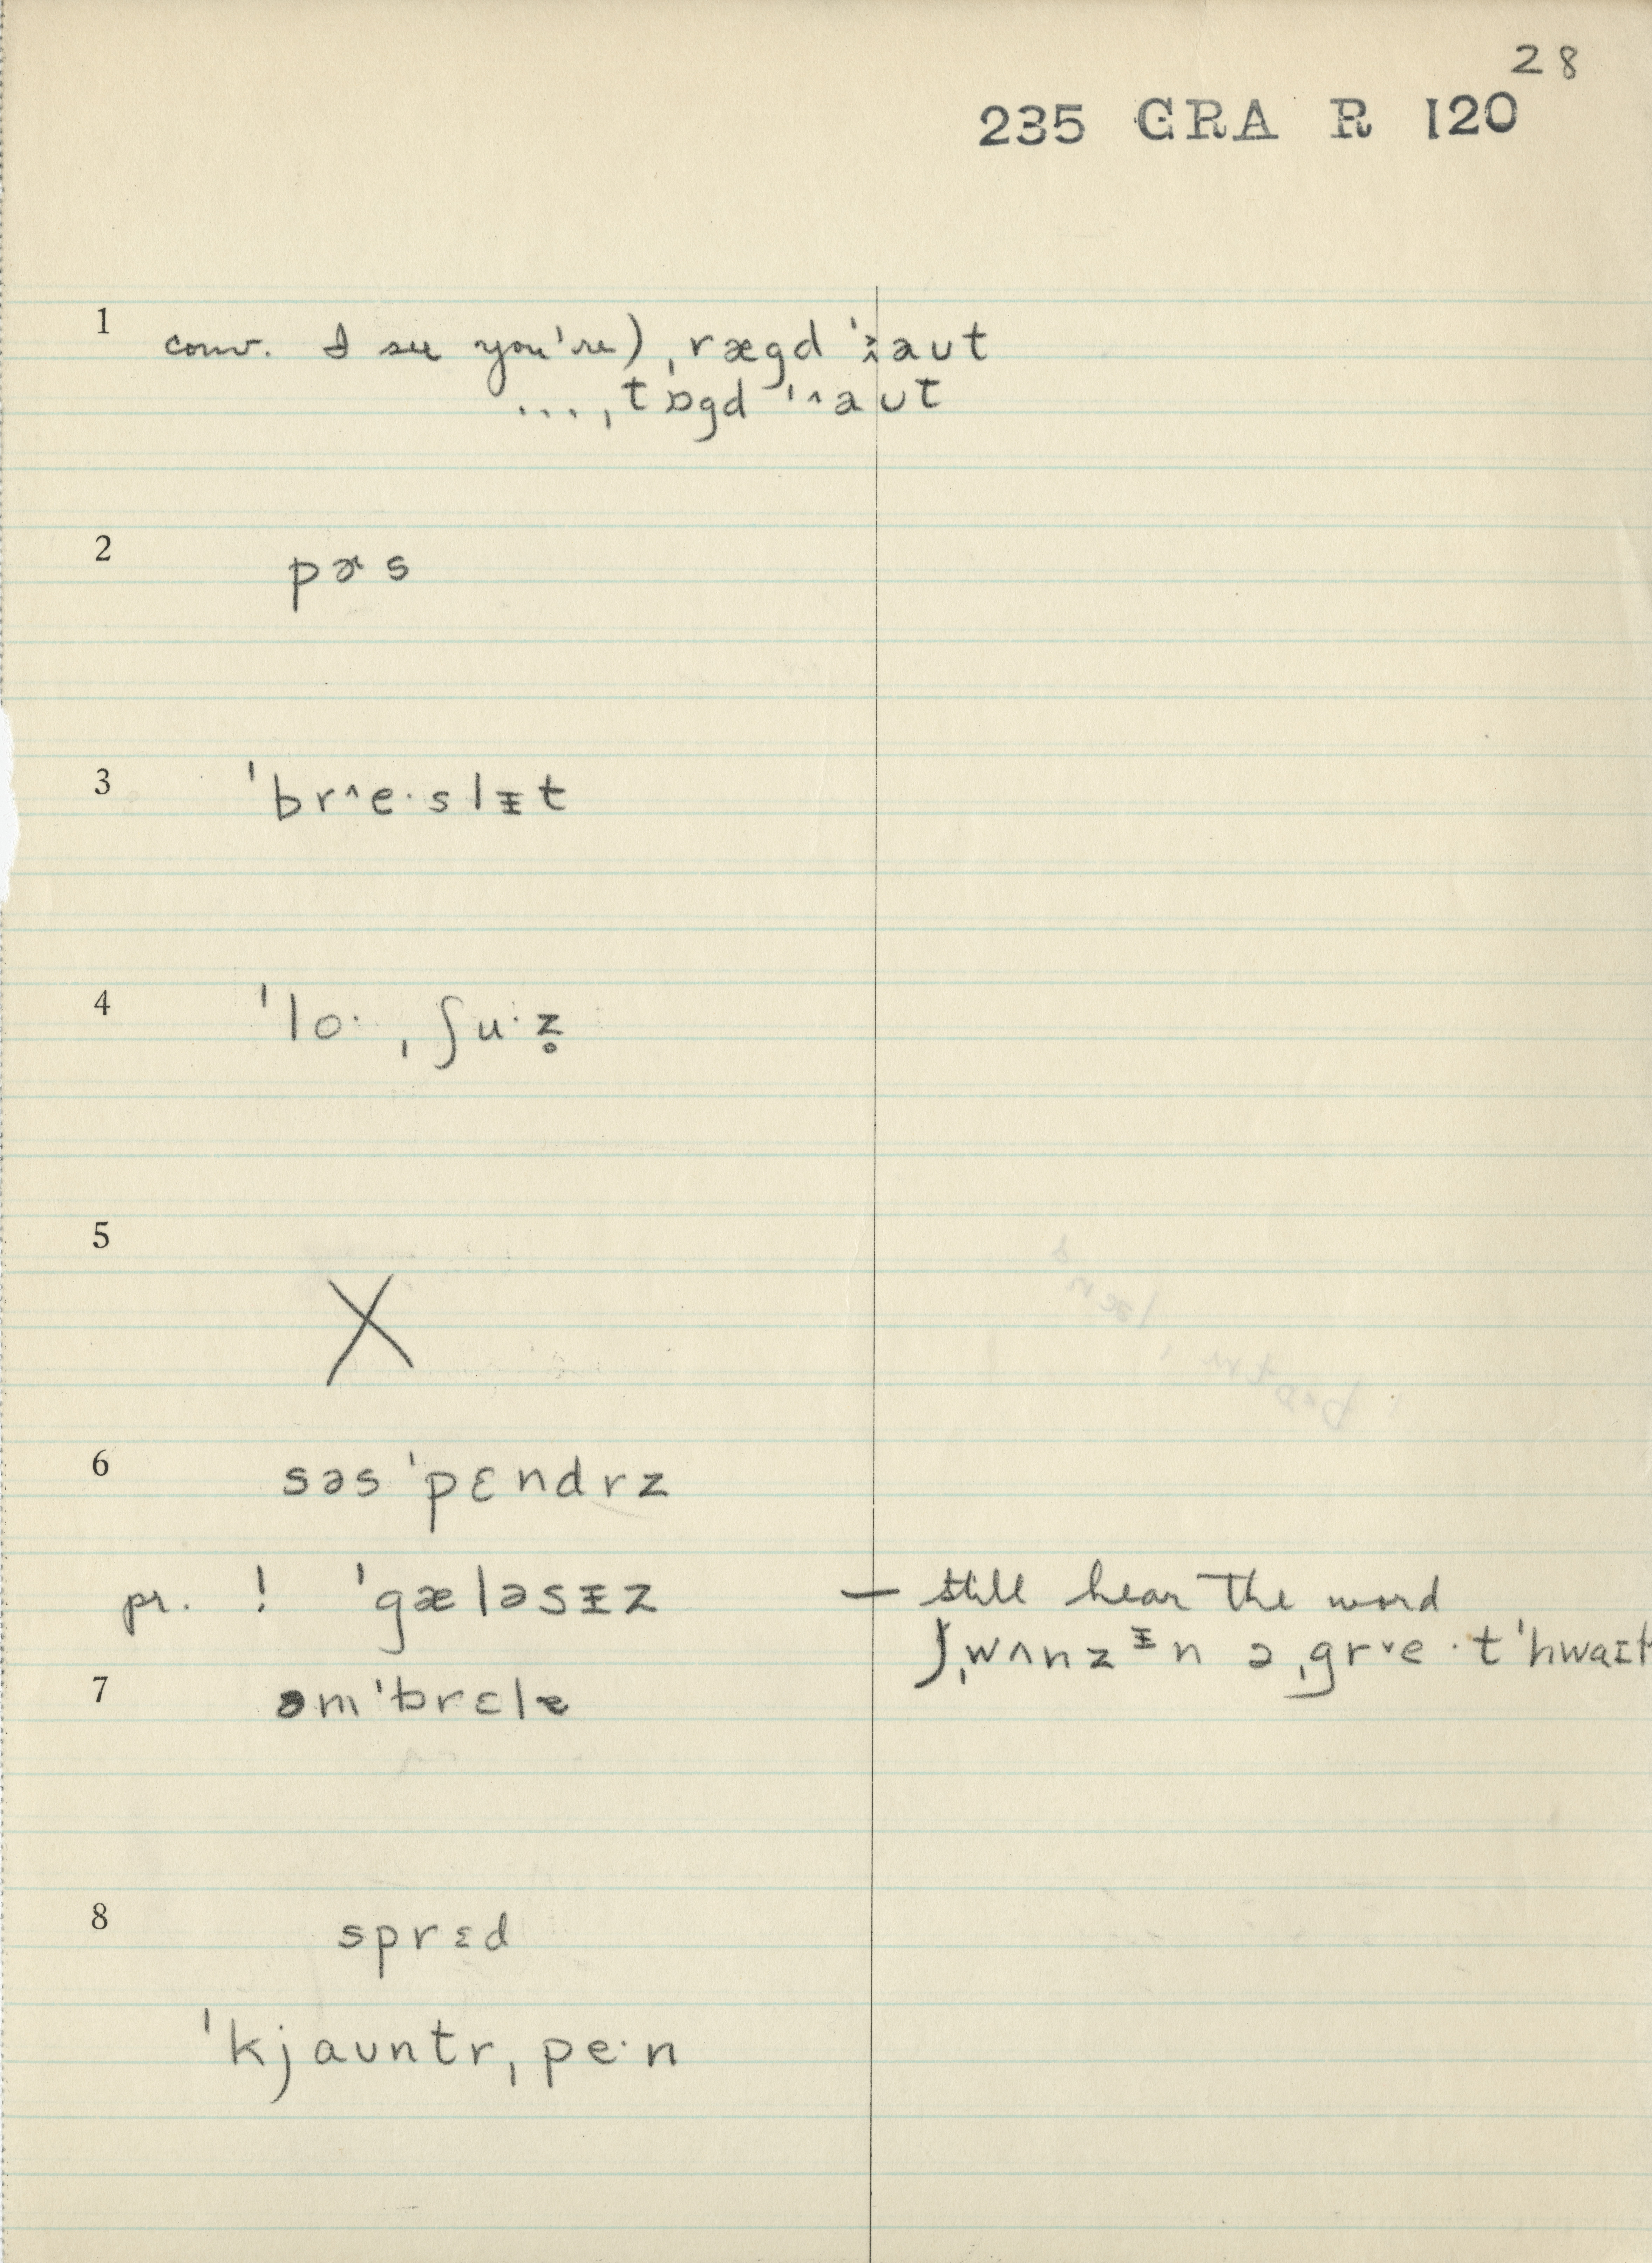 28
235 GRA R 120
1 conv. I see you're) ˌrægd ˈaʊt
... ˌtɒgd ˈ^aʊt
2 pɚs
3 ˈbr^e·slᵻt
4 ˈlo· ˌʃu·z̥
5 X
6 səsˈpɛndrz
pr. ! ˈgæləsᵻz — still hear the word
ˌwʌnz ᵻn ə ˌgrˇe·t ˈhwaɪt
7 əmˈbrɛlɐ
8 sprɛd
ˈkjaʊntrˌpe·n